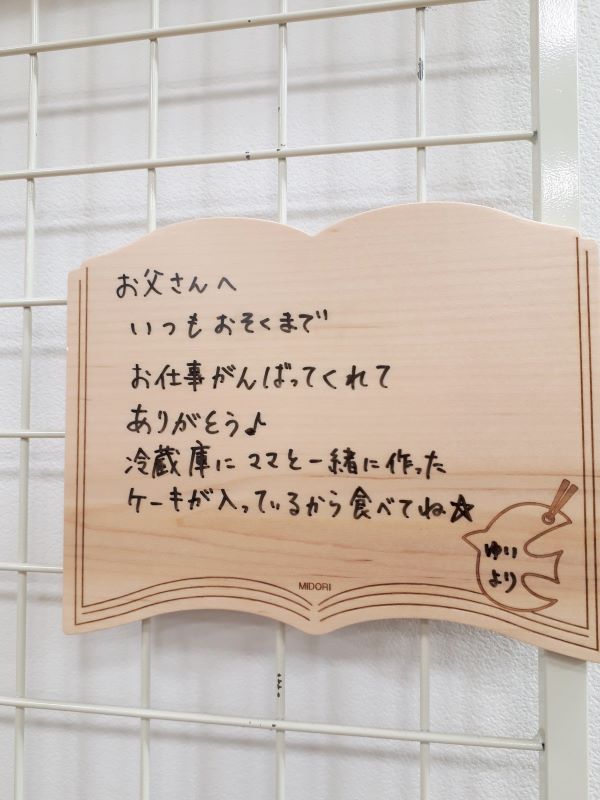 お父さんへ
いつもおそくまで
お仕事がんばってくれて
ありがとう♪
冷蔵庫にママと一緒に作った
ケーキが入っているから食べてね☆
ゆい
より
MIDORI